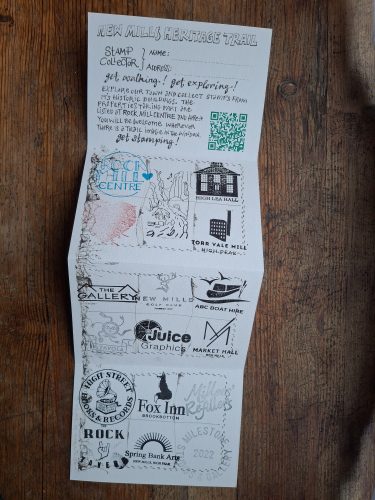 NEW MILLS HERITAGE TRAIL
STAMP COLLECTOR } NAME:
ADDRESS:
get walking! get exploring!
EXPLORE OUR TOWN AND COLLECT STAMPS FROM
ITS HISTORIC BUILDINGS. THE
PROPERTIES TAKING PART ARE
LISTED AT ROCK MILL CENTRE AND
YOU WILL BE WELCOME WHEREVER
THERE IS A IMAGE IN THE WINDOW.
get stamping!
ROCK
MILL
CENTRE
HIGH LEA HALL
TORR VALE MILL
HIGH PEAK
THE
GALLERY
NEW MILLS
GOLF CLUB
ABC BOAT HIRE
Juice
Graphics
MARKET HALL
HIGH STREET
BOOKS & RECORDS
Fox Inn
BROOKBOTTOM
THE
ROCK
TAVERN
Spring Bank Arts
MILESTONE
GALLERY
2022